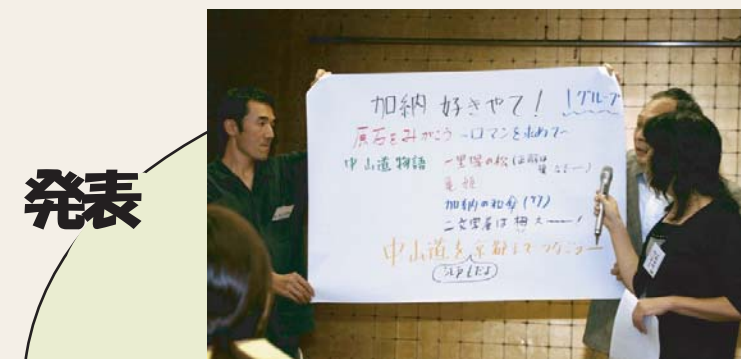 発表
加納 好きやて! 1グループ
原石をみがこう ~ロマンを求めて~
中山道物語 一里塚の松(は
亀姫
加納の和傘(??)
二文字屋は
中山道を京都までつなごう